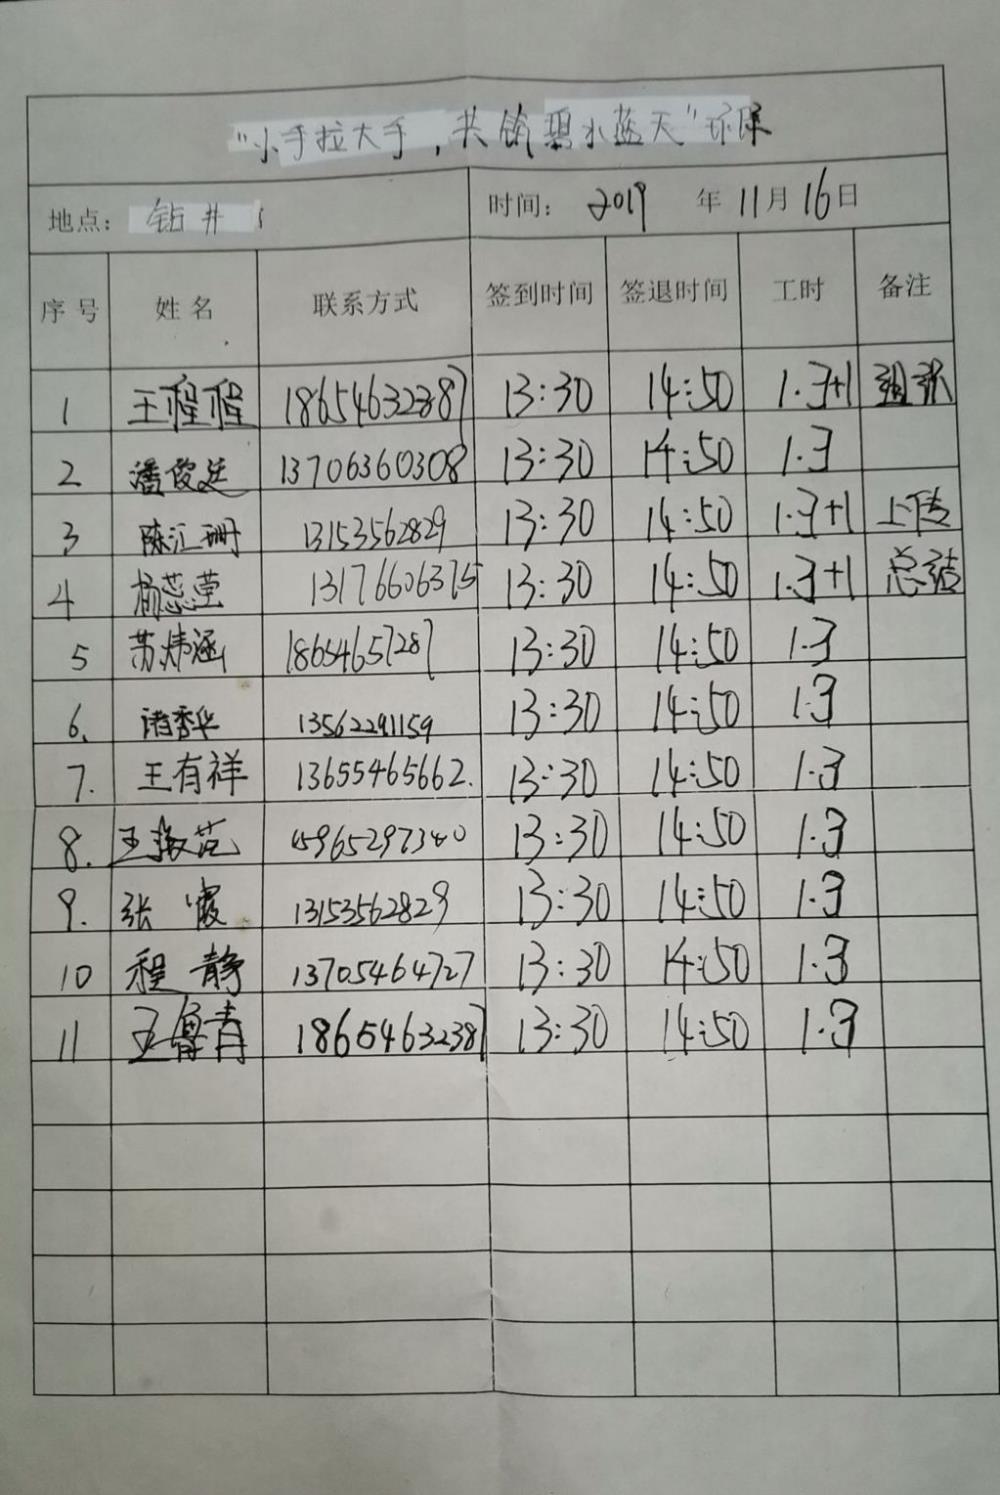 "小手拉大手,共筑碧水蓝天"环保
地点: 钻井 时间: 2019 年 11月 16日
序号 姓名 联系方式 签到时间 签退时间 工时 备注
1 王程程 18654632387 13:30 14:50 1.3+1 组织
2 潘俊廷 13706360308 13:30 14:50 1.3
3 陈汇珊 13153562829 13:30 14:50 1.3+1 上传
4 杨蕊莹 13176606375 13:30 14:50 1.3+1 总结
5 苏炜涵 18654657287 13:30 14:50 1.3
6. 秀华 13562291159 13:30 14:50 1.3
7. 王有祥 13655465662. 13:30 14:50 1.3
8. 王 13:30 14:50 1.3
9. 张霞 13153562829 13:30 14:50 1.3
10 程静 13705464727 13:30 14:50 1.3
11 王鲁青 18654632387 13:30 14:50 1.3